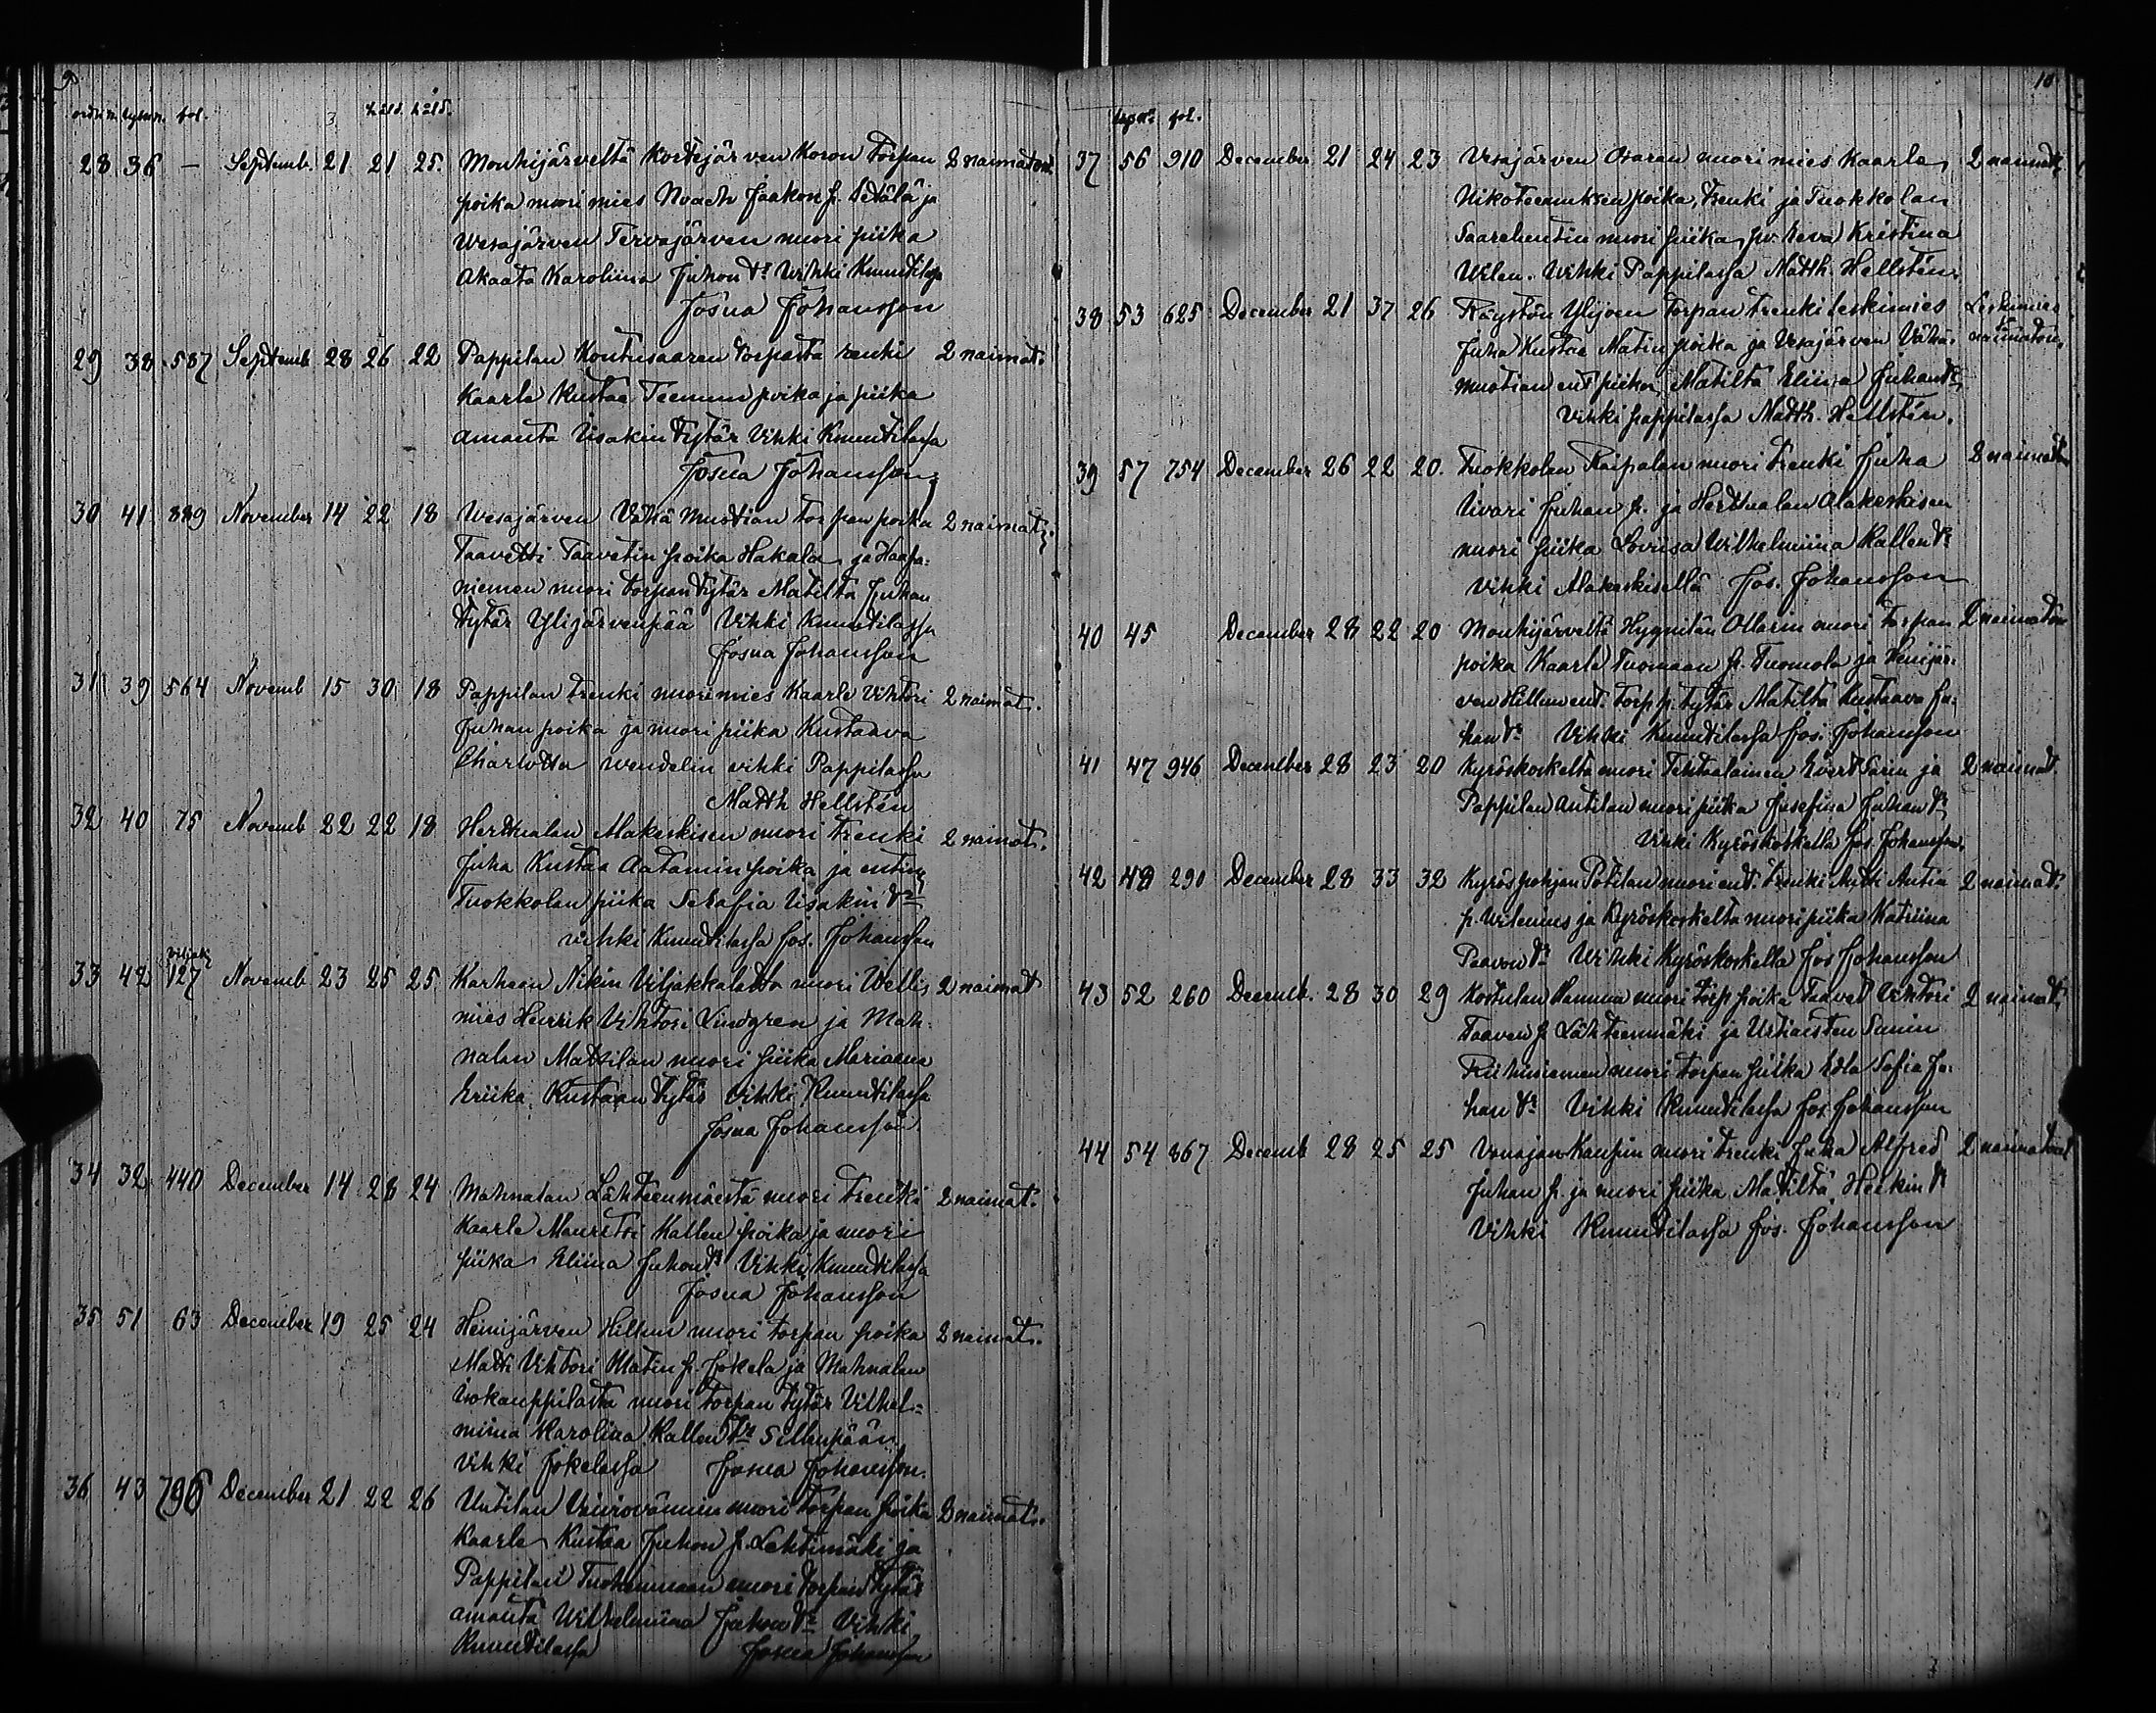 9
fol.
28 36 — Septemb. 21 21 25. Mouhijärveltä Kortejärven Koron torpan 2 naimatont.
poika nuori mies Noach Jaakon p. Setälä ja
Vesajärven Tervajärven nuori piika
Akaata Karoliina Juhon tr Vihki Knuutilassa
Josua Johansson
29 38 587 Septemb 28 26 22 Pappilan Kontusaaren torpasta renki 2 naimat.
Kaarle Kustaa Teemun poika ja piika
Amanta Iisakin tytär Vihki Knuutilassa
Josua Johansson
30 41 889 November 14 22 18 Vesajärven Vähä Mustian torpan poika 2 naimat.
Taavetti Taavetin poika Hakala ja Haapa-
niemen nuori torpan tytär Matilta Juhan
tytär Ylijärvenpää Vihki Knuutilassa
Josua Johansson
31 39 564 Novemb 15 30 18 Pappilan trenki nuori mies Kaarle Vihtori 2 naimat.
Juhan poika ja nuori piika Kustaava
Charlotta Wendelin vihki Pappilassa
Matth Hellstén
32 40 75 Novemb 22 22 18 Herttualan Alakeskisen nuori trenki 2 naimat.
Juha Kustaa Aatamin poika ja entin.
Tuokkolan piika Serafia Iisakin tr
vihki Knuutilassa Jos. Johansson
33 42 127 Novemb 23 25 25 Karheen Nikin Viljakkalasta nuori Wellis 2 naimat
mies Henrik Vihtori Lindgren ja Mah-
nalan Mattilan nuori piika Mariaana
Eriika Kustaan tytär Vihki Knuutilassa
Josua Johansson.
34 32 440 December 14 28 24 Mahnalan Lähteenmäestä nuori trenki 2 naimat.
Kaarle Mauritsi Kallen poika ja nuori
piika Eliina Juhon tr Vihki Knuutilassa
Josua Johansson
35 51 63 December 19 25 24 Heinijärven Hillun nuori torpan poika 2 naimat.
Matti Vihtori Matin p. Jokela ja Mahnalan
Isokauppilasta nuori torpan tytär Vilhel-
miina Karoliina Kallen tr Sillanpään
Vihki Jokelassa Josua Johansson.
36 43 796 December 21 22 26 Untilan nuori torpan poika 2 naimat.
Kaarle Kustaa Juhon p. Lehtimäki ja
Pappilan nuori torpan tytär
Amanta Wilhelmiina Juhon tr Vihki
Knuutilassa Josua Johansson
10
fol.
37 56 910 December 21 24 23 Vesajärven Osaran nuori mies Kaarle 2 naimat.
Nikoteemuksen poika, trenki ja Tuokkolan
nuori piika Eeva Kristina
Wilen. Vihki Pappilassa Matth. Hellstén.
38 53 625 December 21 37 26 Röystön Ylijoen torpan trenki leskimies Leskimies
Juha Kustaa Matin poika ja Vesajärven Vähä- ja naimaton.
mustian ent piika Matilta Eliina Juhan tr
Vihki pappilassa Matth. Hellstén.
39 57 754 December 26 22 20. Tuokkolan Raipalan nuori trenki Juha 2 naimaton
Iivari Juhan p. ja Herttualan Alakeskisen
nuori piika Loviisa Wilhelmiina Kallen tr
Vihki Alakeskisellä Jos. Johansson
40 45 December 28 22 20 Mouhijärveltä Hyynilän Ollarin nuori torpan 2 naimaton
poika Kaarle Tuomaan p. Tuomola ja Heinijär-
ven Hillun ent. torp p. tytär Matilta Kustaava Ju-
han tr Vihki Knuutilassa Jos. Johansson
41 47 946 December 28 23 20 Kyröskoskelta nuori Tehtaalainen Evert Sarin ja 2 naimat.
Pappilan Antilan nuori piika Josefina Juhan tr
Vihki Kyröskoskella Jos. Johansson.
42 48 290 December 28 33 32 Kyröspohjan nuori ent. trenki Antti Antin 2 naimat.
p. Wilenius ja Kyröskoskelta nuori piika Katriina
Paavon tr Vihki Kyröskoskella Jos Johansson
43 52 260 Decemb. 28 30 29 Kostulan Hannun nuori torp poika Taavet Vihtori 2 naimat.
Taaven p. Lähteenmäki ja Urtiaisten Sunin
Riihiniemen nuori torpan piika Edla Sofia Ju-
han tr Vihki Knuutilassa Jos. Johansson
44 54 867 Decemb 28 25 25 Vanajan Kaupin nuori trenki Juha Alfred 2 naimatont
Juhan p. ja nuori piika Matilta Heikin tr
Vihki Knuutilassa Jos. Johansson